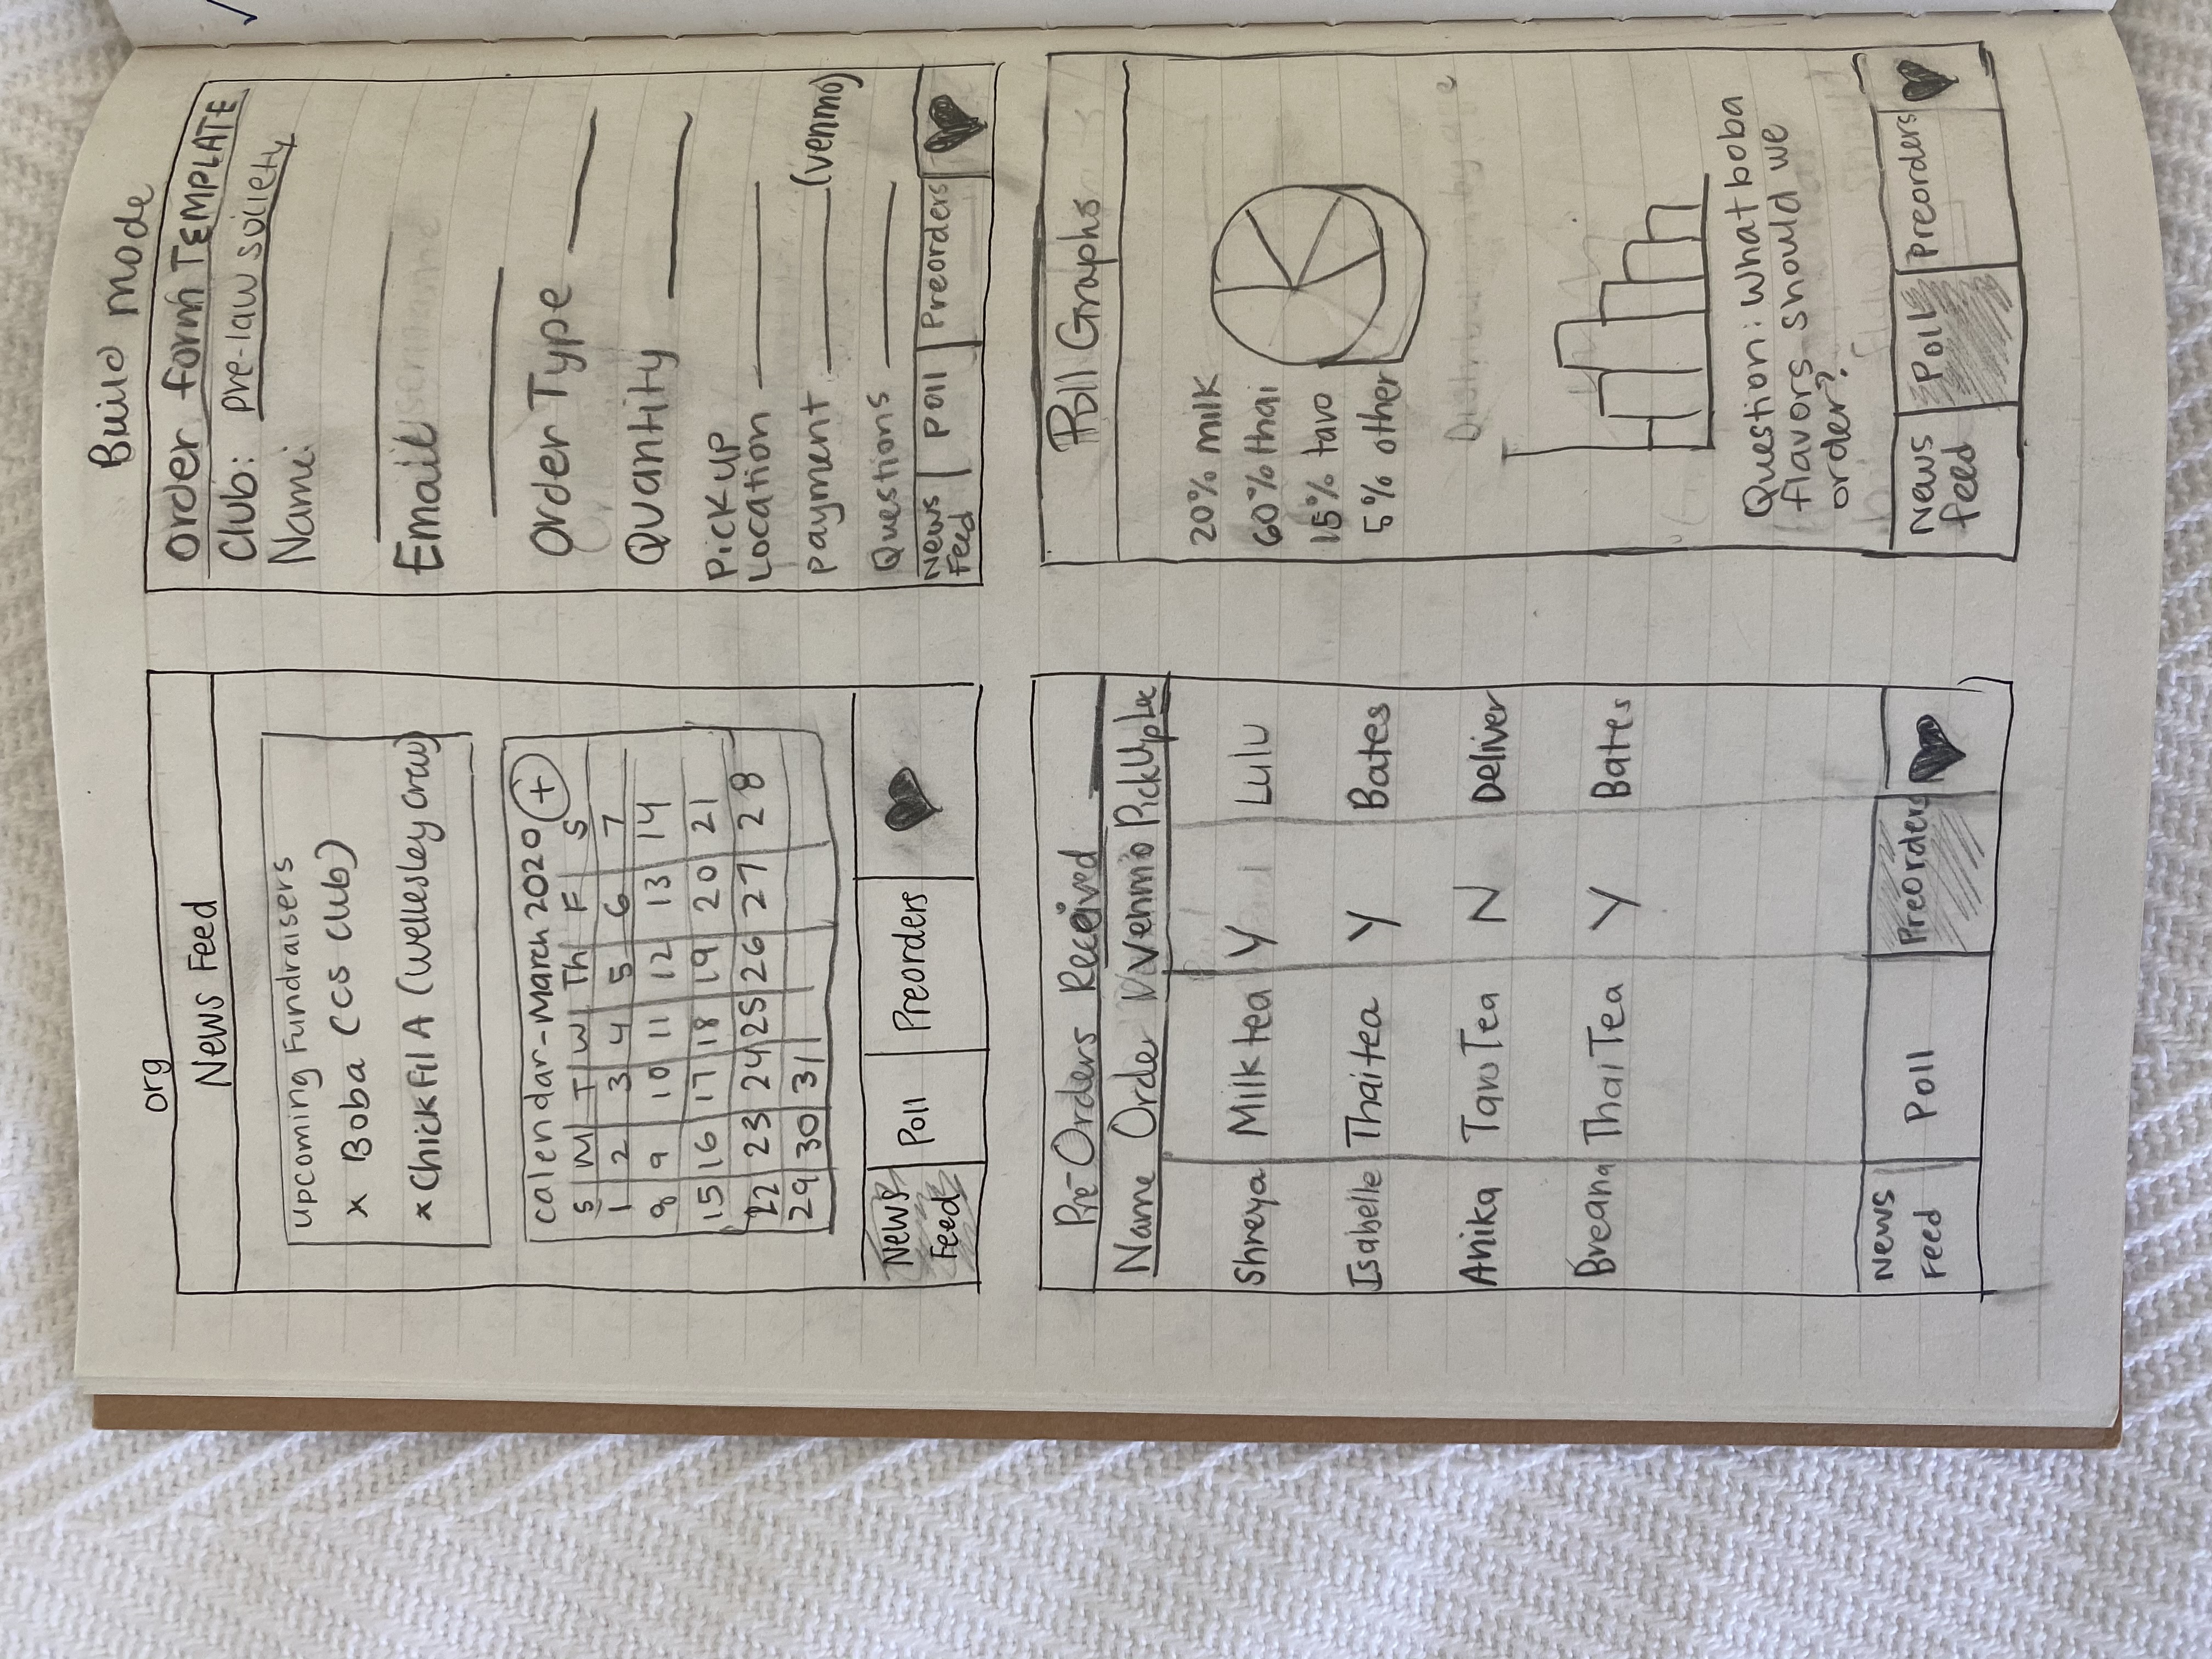 org
News Feed
Upcoming Fundraisers
x Boba (CS Club)
x Chick Fil A (Wellesley Crew)
calendar - March 2020 +
S M T W Th F S
1 2 3 4 5 6 7
8 9 10 11 12 13 14
15 16 17 18 19 20 21
22 23 24 25 26 27 28
29 30 31
News Feed Poll Preorders
Build mode
Order form TEMPLATE
Club: pre-law society
Name:
Email
Order Type
Quantity
Pick up
Location
payment (venmo)
Questions
News Feed Poll Preorders
Pre-Orders Received
Name Order Venmo PickUp Loc
Shreya Milk tea Y Lulu
Isabelle Thai tea Y Bates
Anika Taro Tea N Deliver
Breana Thai Tea Y Bates
News Feed Poll Preorders
Poll Graphs
20% milk
60% thai
15% taro
5% other
Question: What boba
flavors should we
order?
News feed Poll Preorders